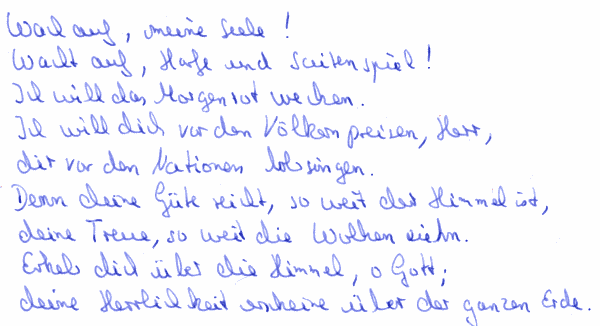 Wach auf, meine Seele!
Wacht auf, Harfe und Saitenspiel!
Ich will das Morgenrot wecken.
Ich will dich vor den Völkern preisen, Herr,
dir vor den Nationen lobsingen.
Denn deine Güte reicht, so weit der Himmel ist,
deine Treue, so weit die Wolken ziehn.
Erheb dich über die Himmel, o Gott;
deine Herrlichkeit erscheine über der ganzen Erde.